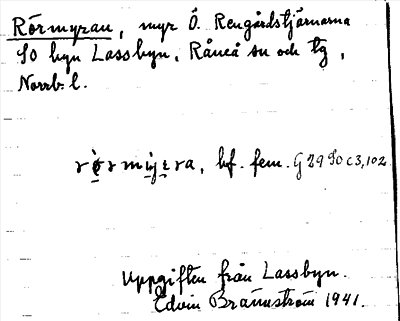 Rörmyran, myr Ö. Rengårdstjärnarna
SO byn Lassbyn, Råneå sn och tg,
Norrb. l.
bf. fem. G 29 SO c3, 102
Uppgiften från Lassbyn.
Edvin Brännström 1941.